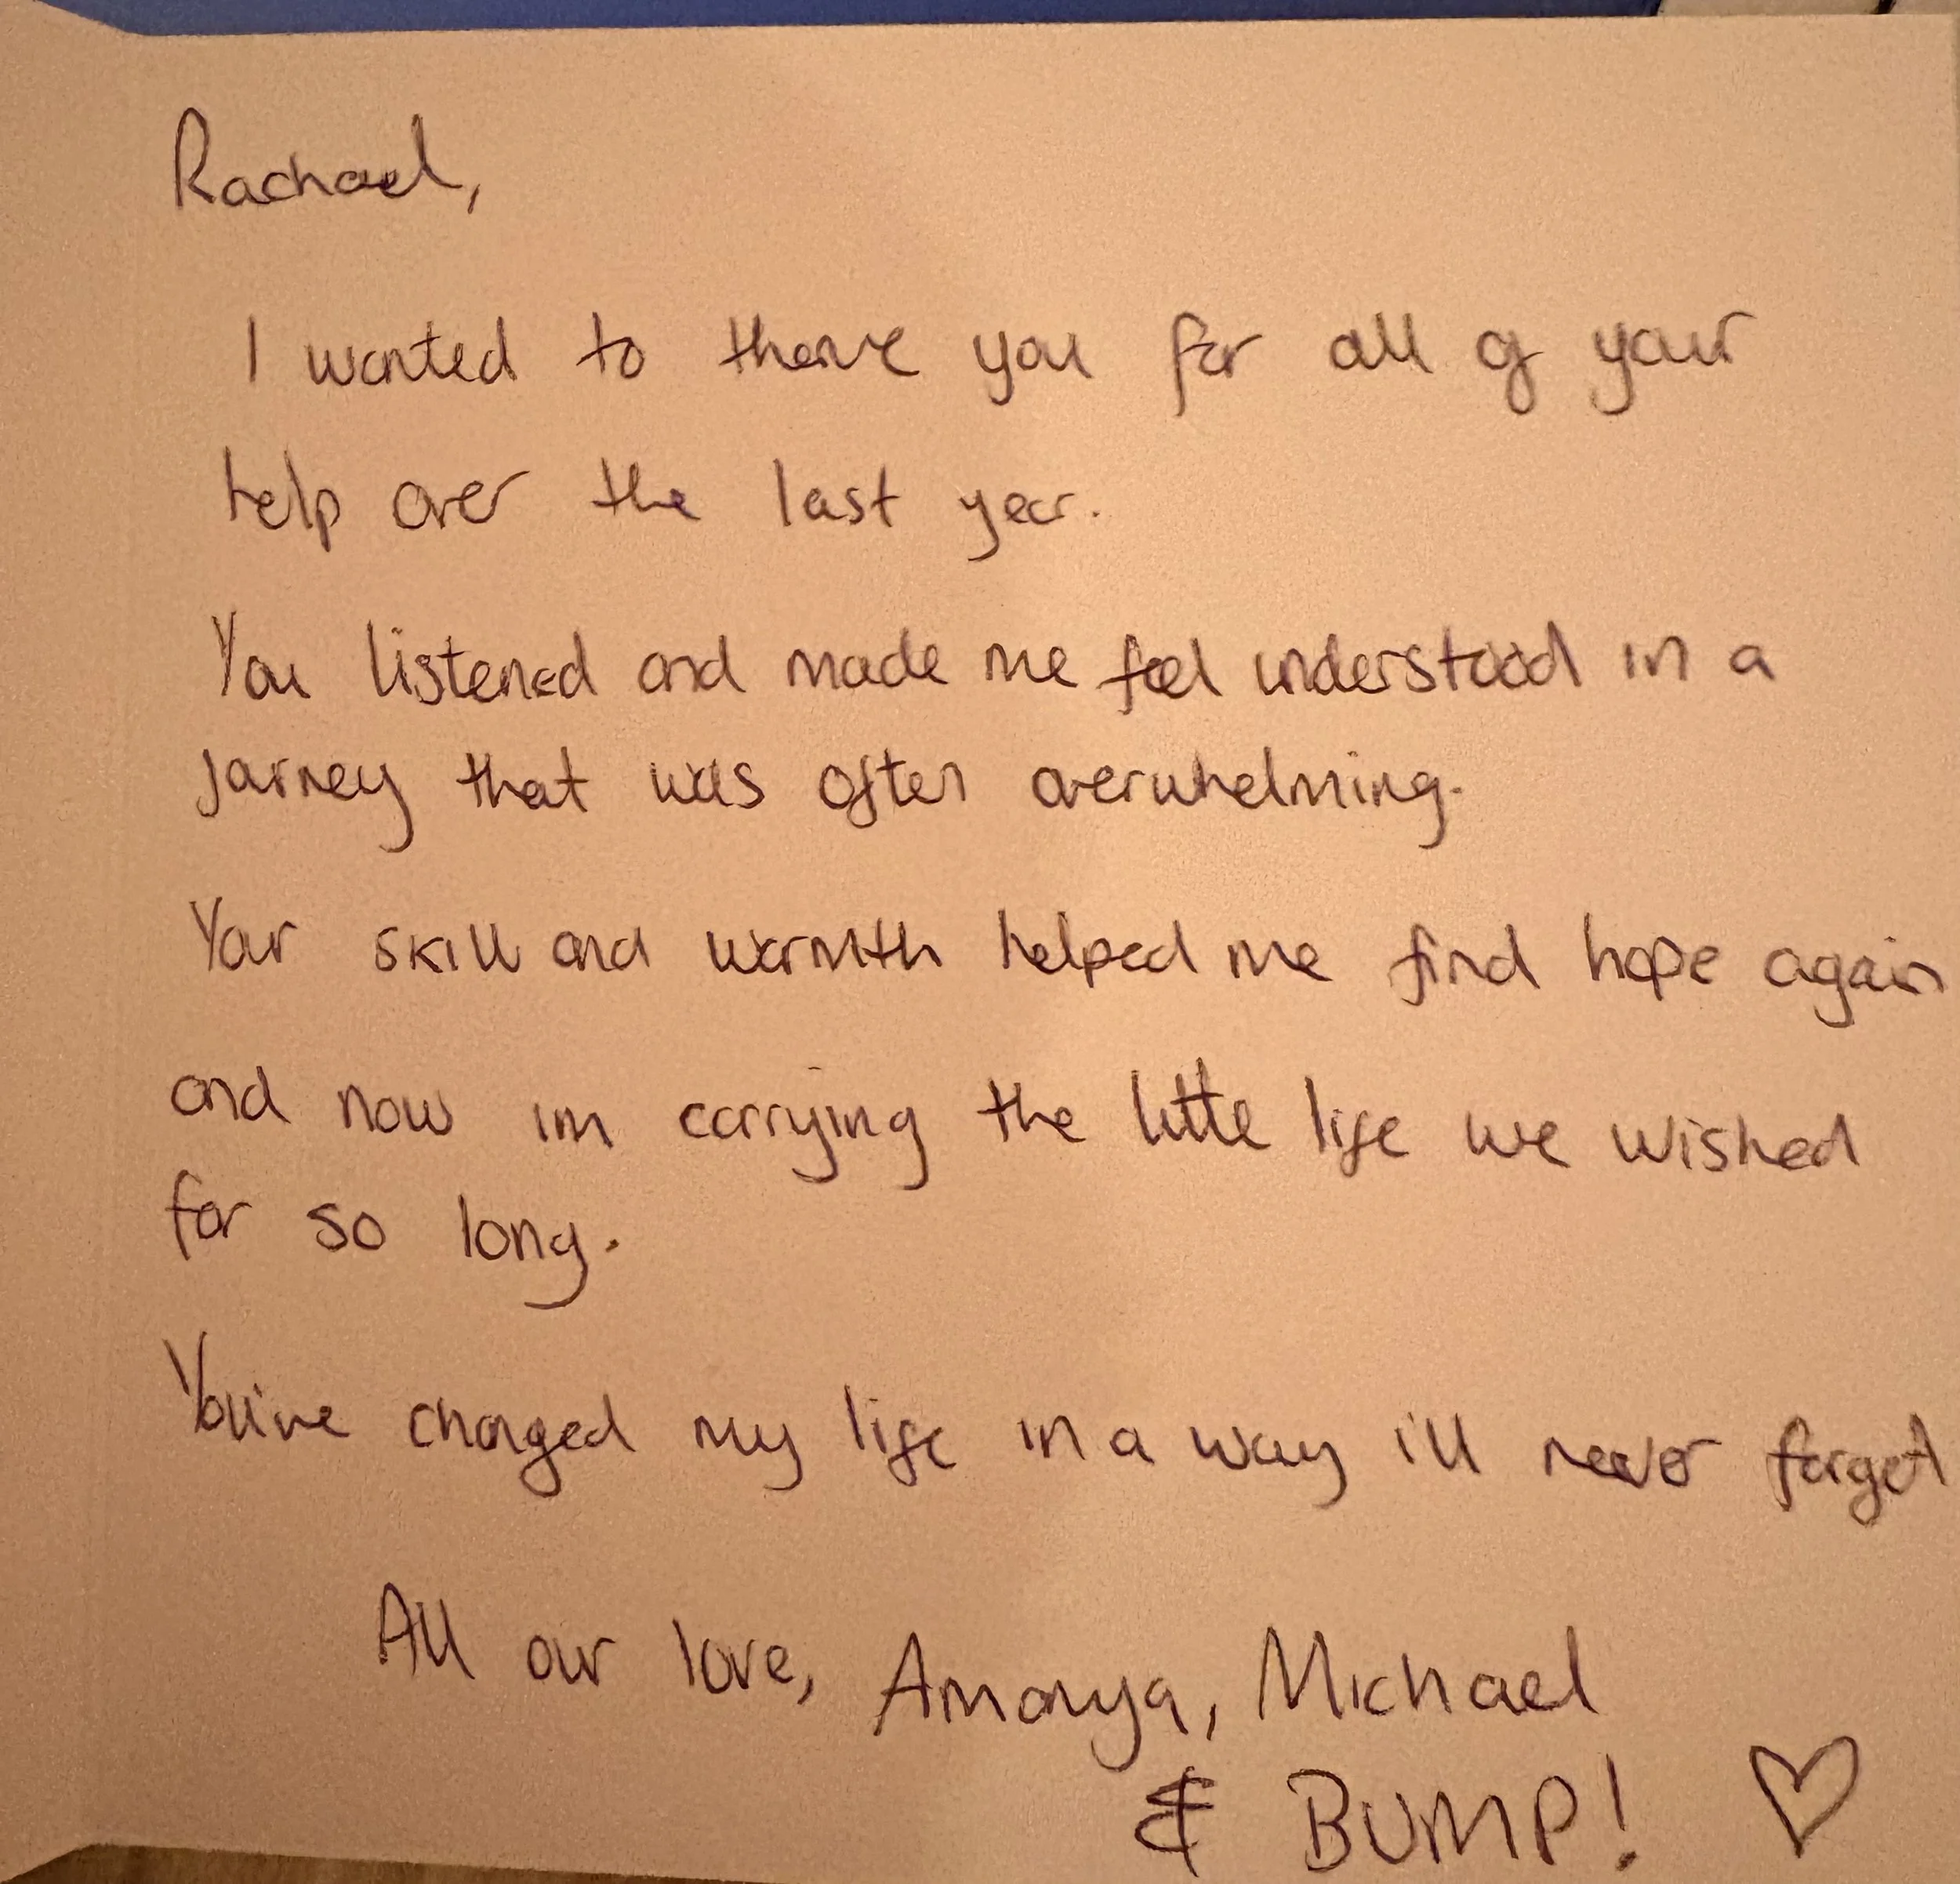 Rachael,
I wanted to thank you for all of your
help over the last year.
You listened and made me feel understood in a
journey that was often overwhelming.
Your skill and warmth helped me find hope again
and now im carrying the little life we wished
for so long.
You've changed my life in a way i'll never forget
All our love, Amanya, Michael
& BUMP! ♡